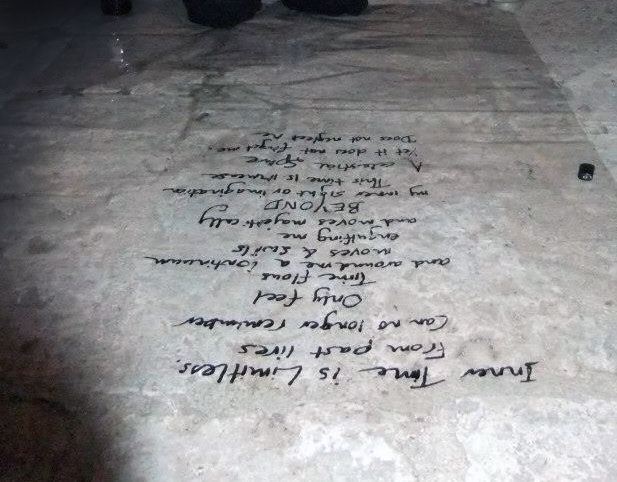 Inner Time is Limitless.
From past lives
Can no longer remember
Only feel
Time flows
and around me a continuum
moves &
engulfing me
and moves majestically
BEYOND
my inner sight or imagination
This time is immense
A celestial
Yet it does not forget me.
Does not neglect me